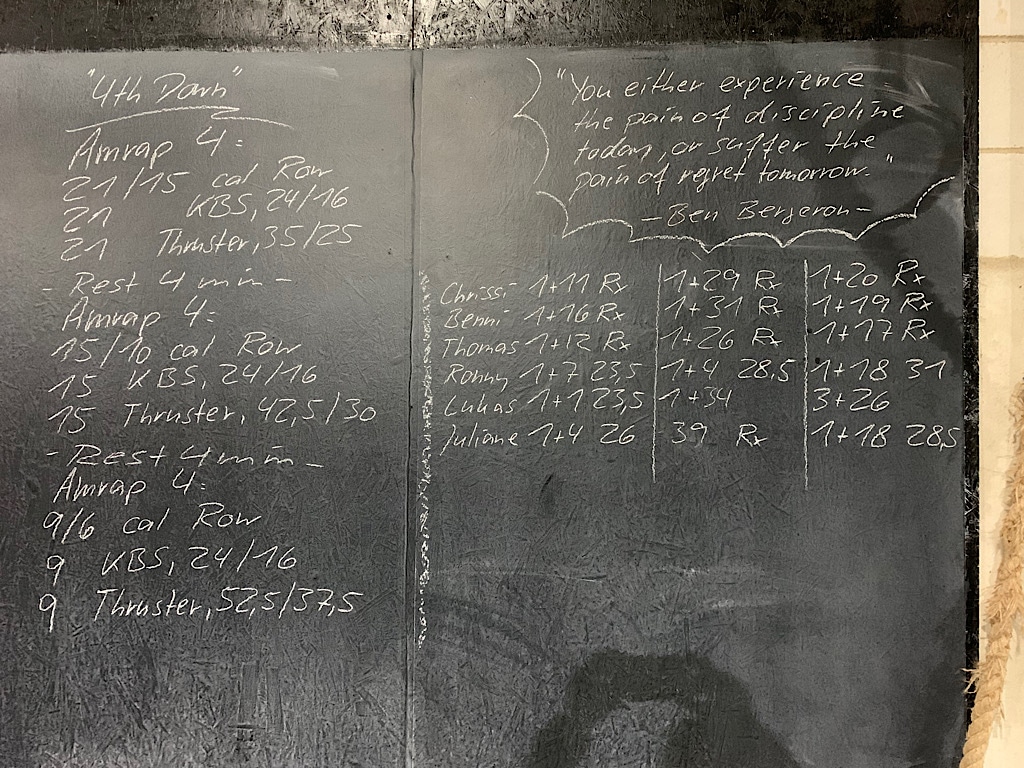 "4th Down"
Amrap 4:
21/15 cal Row
21 KBS, 24/16
21 Thruster, 35/25
- Rest 4 min -
Amrap 4:
15/10 cal Row
15 KBS, 24/16
15 Thruster, 42,5/30
- Rest 4 min -
Amrap 4:
9/6 cal Row
9 KBS, 24/16
9 Thruster, 52,5/37,5
"You either experience
the pain of discipline
today, or suffer the
pain of regret tomorrow."
- Ben Bergeron -
Chrissi 1+11 Rx 1+29 Rx 1+20 Rx
Benni 1+16 Rx 1+31 Rx 1+19 Rx
Thomas 1+12 Rx 1+26 Rx 1+17 Rx
Ronny 1+7 23,5 1+4 28,5 1+18 31
Lukas 1+1 23,5 1+34 3+26
Juliane 1+4 26 39 Rx 1+18 28,5